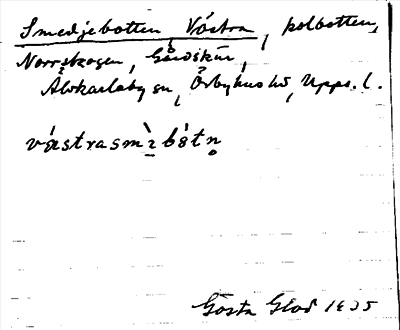 Smedjebotten, Västra, kolbotten,
Norrskogen, Gårdskär,
Älvkarleby sn, Örbyhus hd, Upps. l.
västrasmɪbòtn̥
Gösta Glad 1935